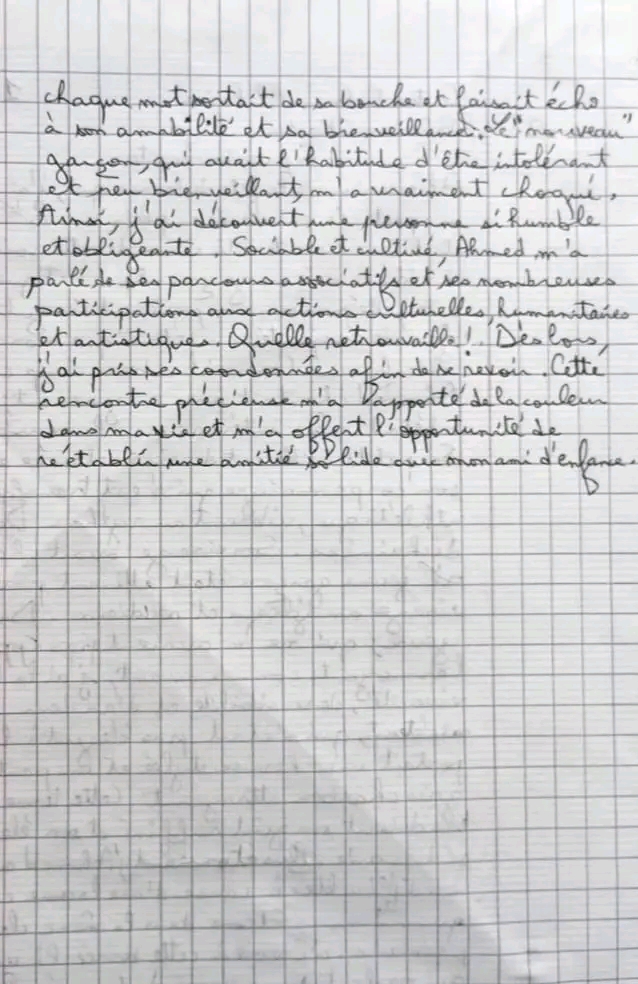 chaque mot sortait de sa bouche et faisait écho
à son amabilité et sa bienveillance. Le "nouveau"
garçon, qui avait l'habitude d'être intolérant
et peu bienveillant, m'a vraiment choqué.
Ainsi, j'ai découvert une personne si humble
et obligeante. Sociable et cultivé, Ahmed m'a
parlé de ses parcours associatifs et ses nombreuses
participations aux actions culturelles, humanitaires
et artistiques. Quelle retrouvaille ! Dès lors,
j'ai pris ses coordonnées afin de se revoir. Cette
rencontre précieuse m'a apporté de la couleur
dans ma vie et m'a offert l'opportunité de
rétablir une amitié solide avec mon ami d'enfance.